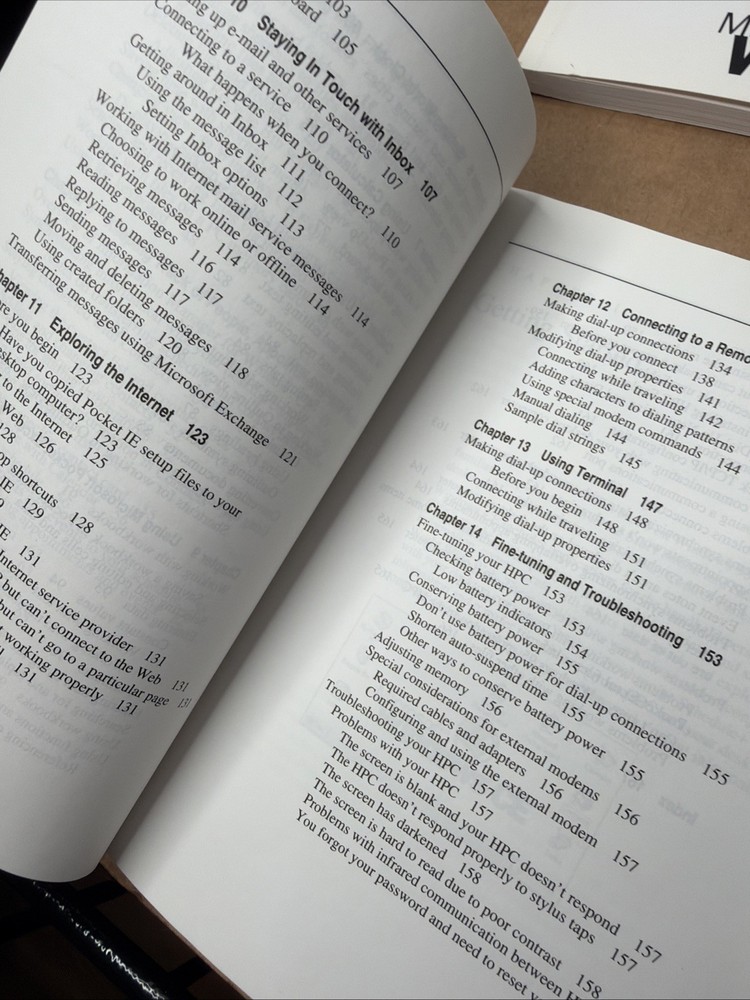 103
oard 105
10 Staying In Touch with Inbox 107
ng up e-mail and other services 107
Connecting to a service 110
What happens when you connect? 110
Getting around in Inbox 111
Using the message list 112
Setting Inbox options 113
Working with Internet mail service messages 114
Choosing to work online or offline 114
Retrieving messages 114
Reading messages 116
Replying to messages 117
Sending messages 117
Moving and deleting messages 118
Using created folders 120
Transferring messages using Microsoft Exchange 121
hapter 11 Exploring the Internet 123
ore you begin 123
Have you copied Pocket IE setup files to your
esktop computer? 123
to the Internet 125
Web 126
128
op shortcuts 128
IE 129
IE 131
Internet service provider 131
but can't connect to the Web 131
but can't go to a particular page 131
t working properly 131
131
M
Chapter 12 Connecting to a Remo
Making dial-up connections 134
Before you connect 138
Modifying dial-up properties 141
Connecting while traveling 142
Adding characters to dialing patterns
Using special modem commands 144
Manual dialing 144
Sample dial strings 145
Chapter 13 Using Terminal 147
Making dial-up connections 148
Before you begin 148
Connecting while traveling 151
Modifying dial-up properties 151
Chapter 14 Fine-tuning and Troubleshooting 153
Fine-tuning your HPC 153
Checking battery power 153
Low battery indicators 154
Conserving battery power 155
Don't use battery power for dial-up connections 155
Shorten auto-suspend time 155
Other ways to conserve battery power 155
Adjusting memory 156
Special considerations for external modems 156
Required cables and adapters 156
Configuring and using the external modem 157
Troubleshooting your HPC 157
Problems with your HPC 157
The screen is blank and your HPC doesn't respond 157
The HPC doesn't respond properly to stylus taps 157
The screen has darkened 158
The screen is hard to read due to poor contrast 158
Problems with infrared communication between H
You forgot your password and need to reset y